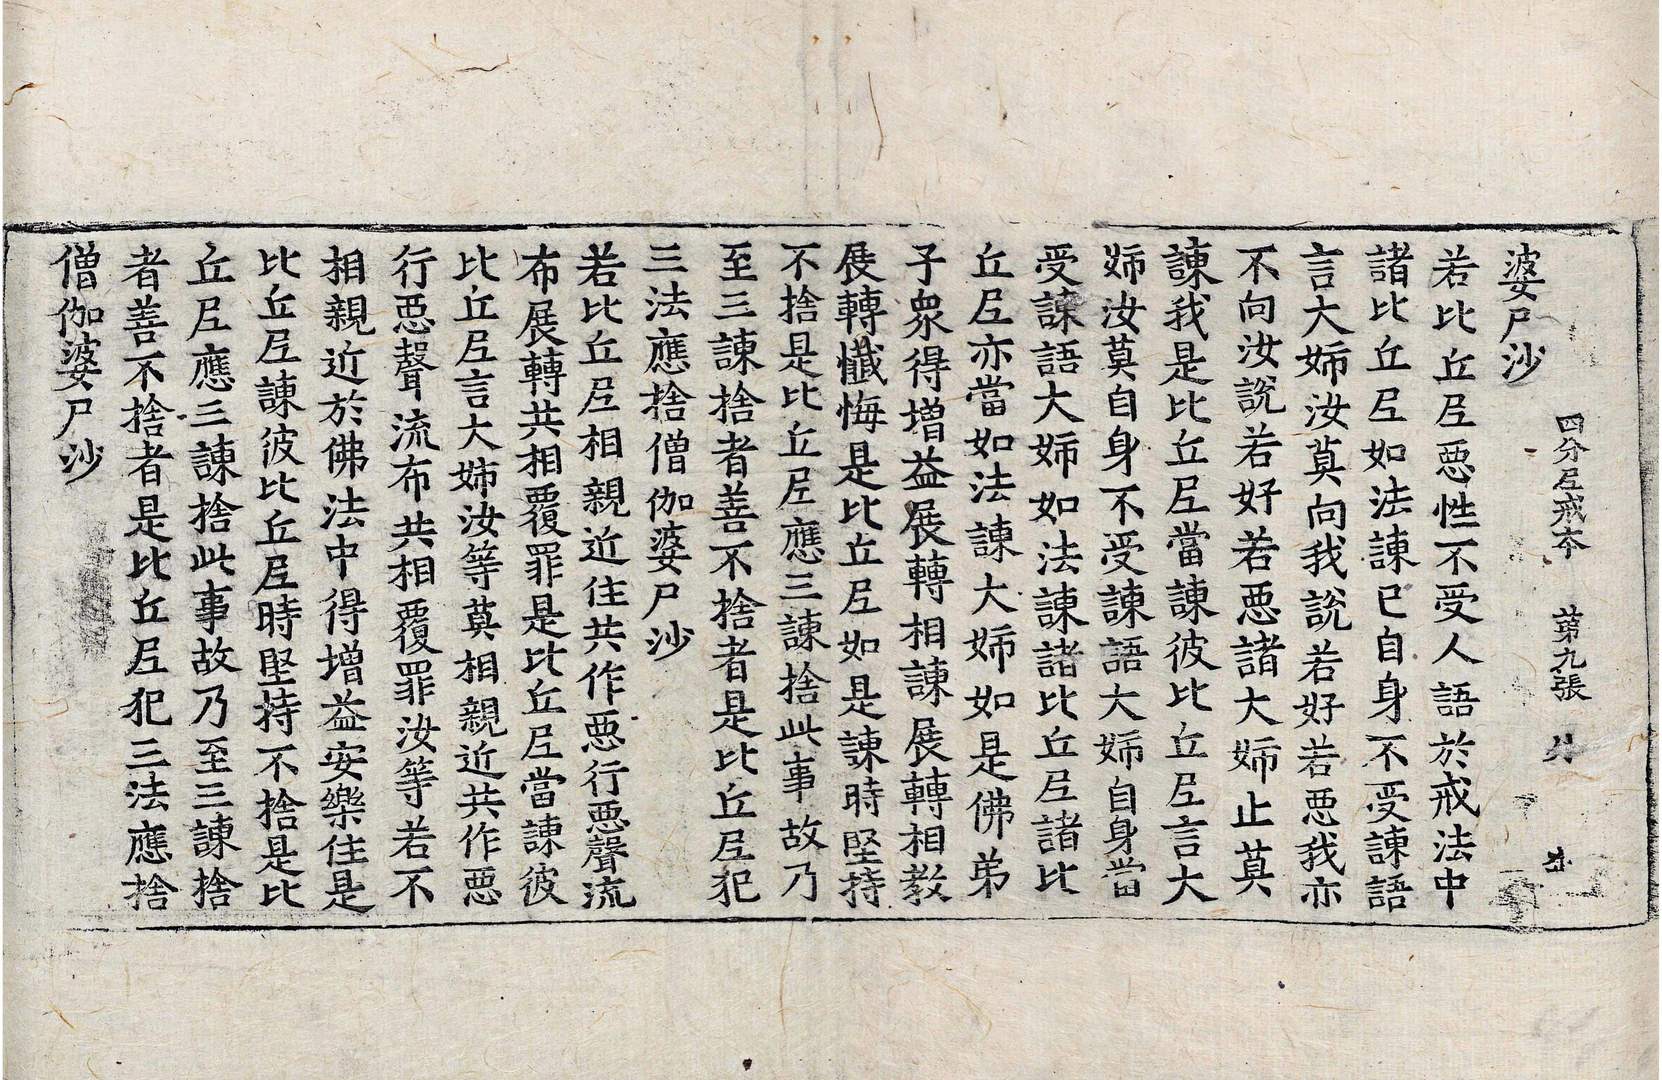 四分尼戒本 第九張
婆尸沙
若比丘尼惡性不受人語於戒法中
諸比丘尼如法諫已自身不受諫語
言大姊汝莫向我說若好若惡我亦
不向汝說若好若惡諸大姊止莫
諫我是比丘尼當諫彼比丘尼言大
姊汝莫自身不受諫語大姊自身當
受諫語大姊如法諫諸比丘尼諸比
丘尼亦當如法諫大姊如是佛弟
子衆得增益展轉相諫展轉相教
展轉懺悔是比丘尼如是諫時堅持
不捨是比丘尼應三諫捨此事故乃
至三諫捨者善不捨者是比丘尼犯
三法應捨僧伽婆尸沙
若比丘尼相親近住共作惡行惡聲流
布展轉共相覆罪是比丘尼當諫彼
比丘尼言大姊汝等莫相親近共作惡
行惡聲流布共相覆罪汝等若不
相親近於佛法中得增益安樂住是
比丘尼諫彼比丘尼時堅持不捨是比
丘尼應三諫捨此事故乃至三諫捨
者善不捨者是比丘尼犯三法應捨
僧伽婆尸沙